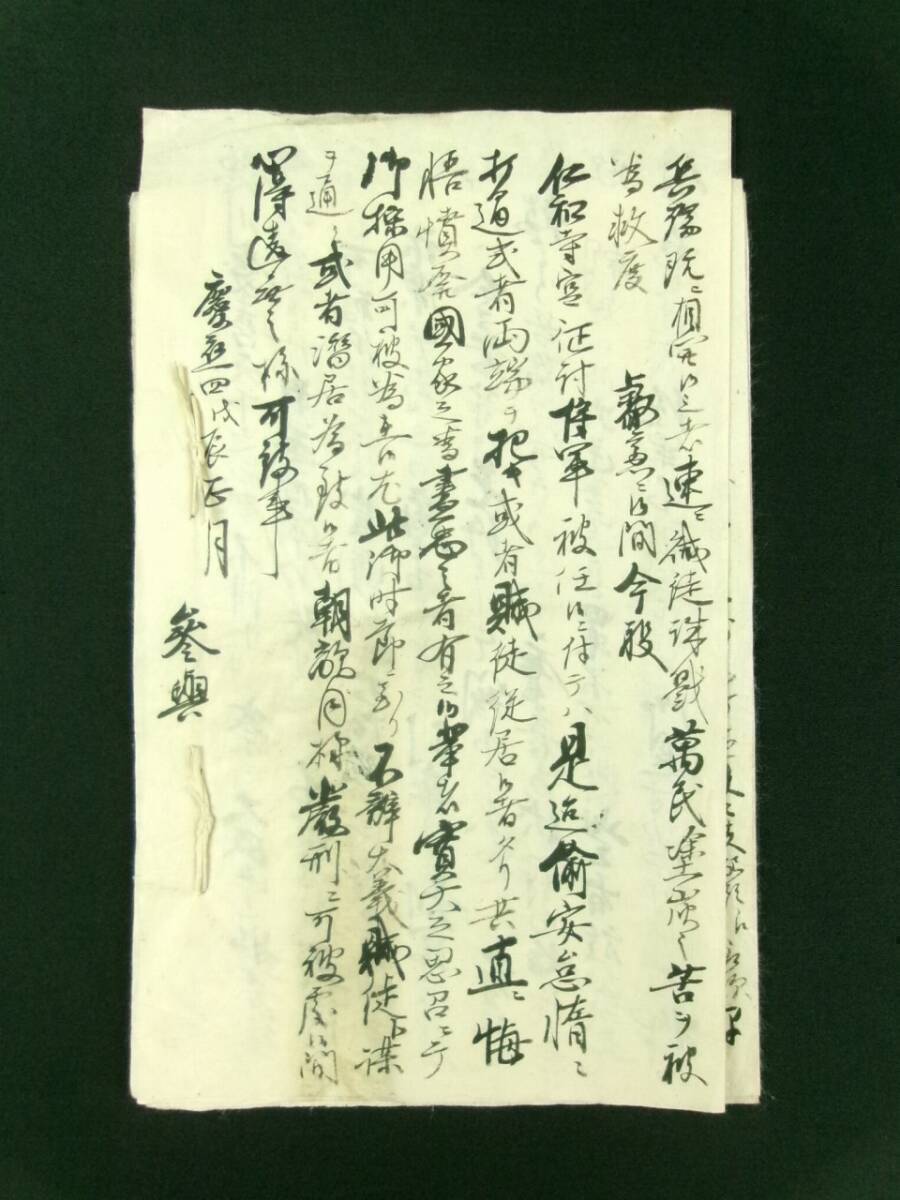 兵端既ニ相開候上者速ニ賊徒誅戮萬民塗炭之苦ヲ被
為救度 叡慮ニ候間今般
仁和寺宮征討将軍被任候ニ付テハ是迄偷安怠惰ニ
打過或者両端ヲ抱キ或者賊徒従居候者タリ共直ニ悔
悟憤発國家之為盡忠之者有之候輩者寛大之思召ニテ
御採用可被為在候尤此御時節ニ至リ不辨大義賊徒ト謀
ヲ通シ或者潜居為致候者朝敵同様嚴刑ニ可被處候間
心得違無之様可致事
慶應四戊辰正月
参與